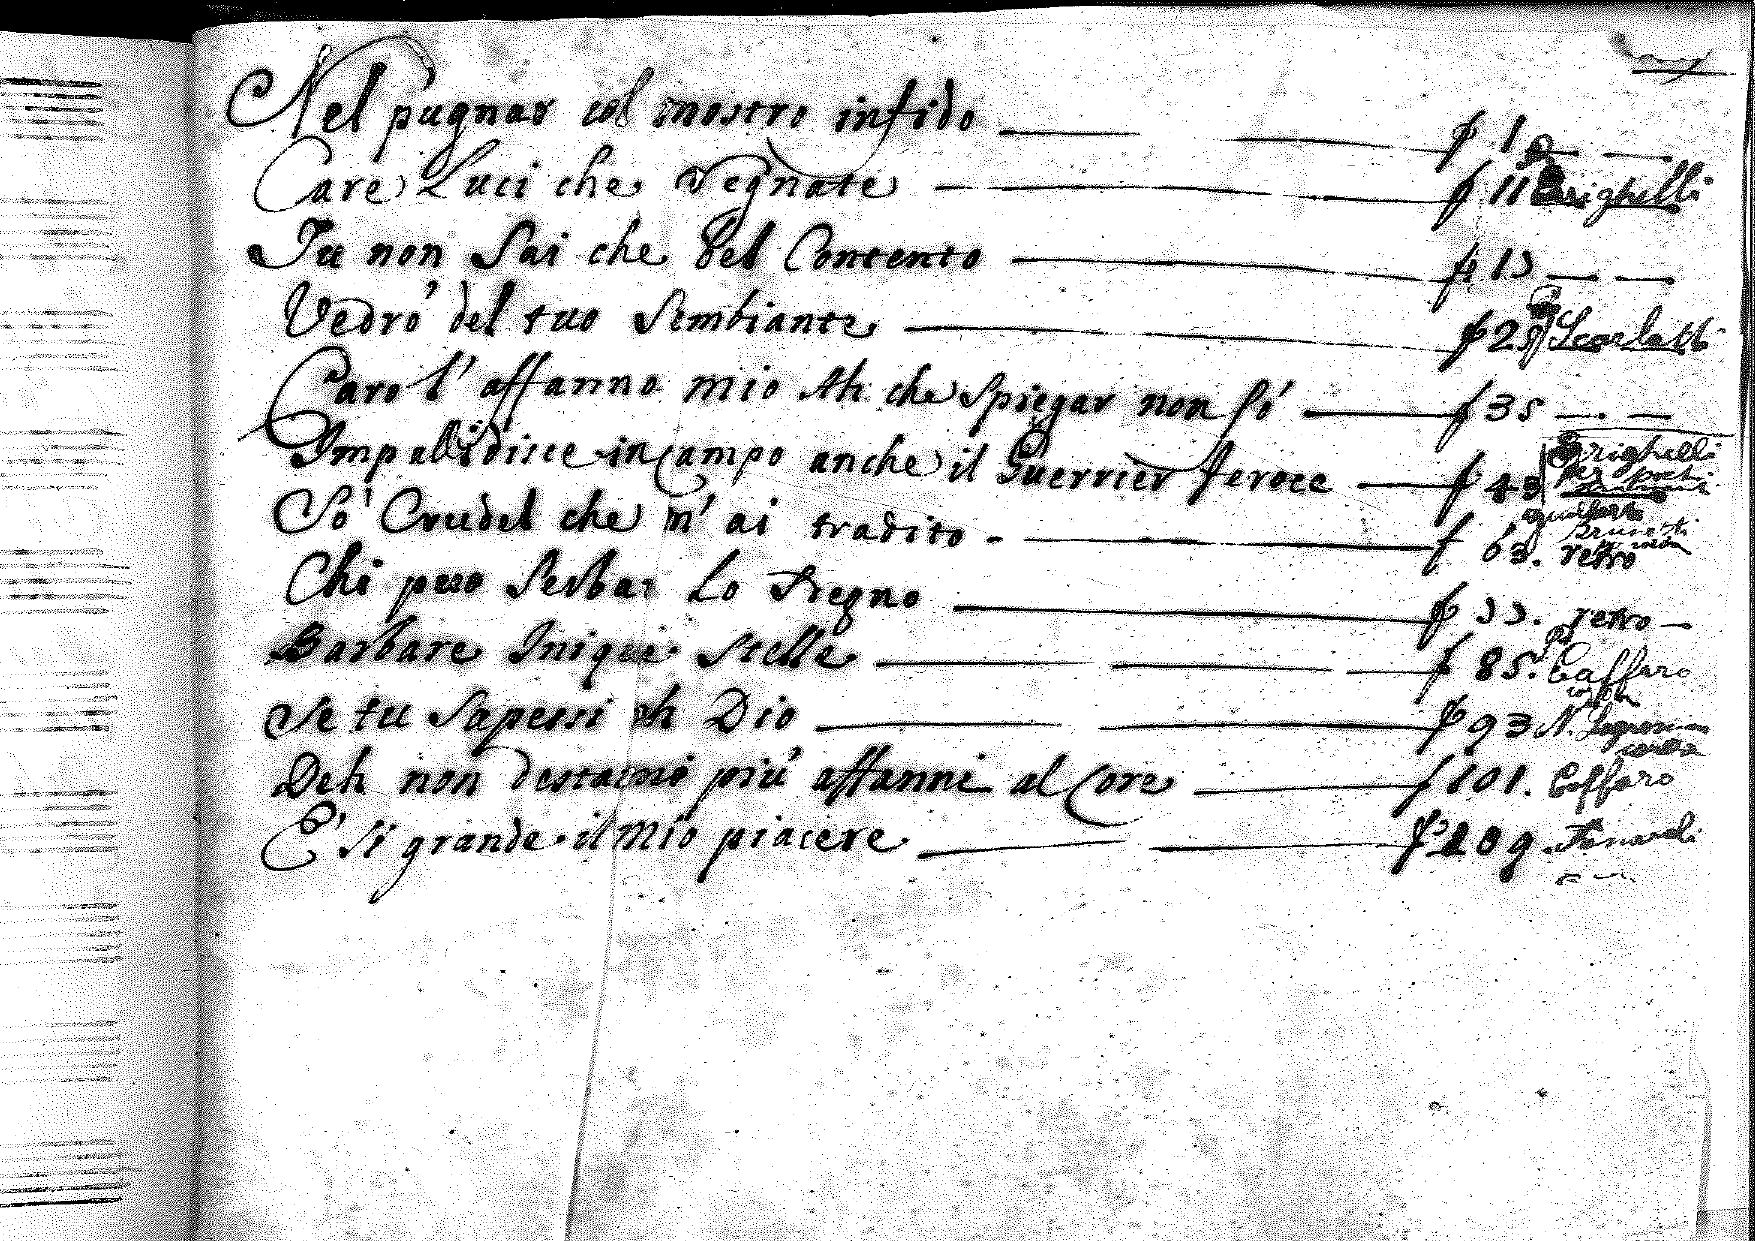 Nel pugnar col mostro infido f 1
Care Luci che regnate f 11
Tu non Sai che bel Contento f 15
Vedrò del tuo Sembiante f 25 Scarlatti
Caro l'affanno mio Ah che Spiegar non sò f 35
Impallidisce in Campo anche il Guerrier feroce f 43
Sò Crudel che m'ai tradito f 63. retro
Chi può Serbar Lo Sregno f 77. retro
Barbare Inique Stelle f 85. Caffaro
Se tu Sapessi oh Dio f 93
Deh non destarmi più affanni al Core f 101. Caffaro
E' Si grande il Mio piacere f 109